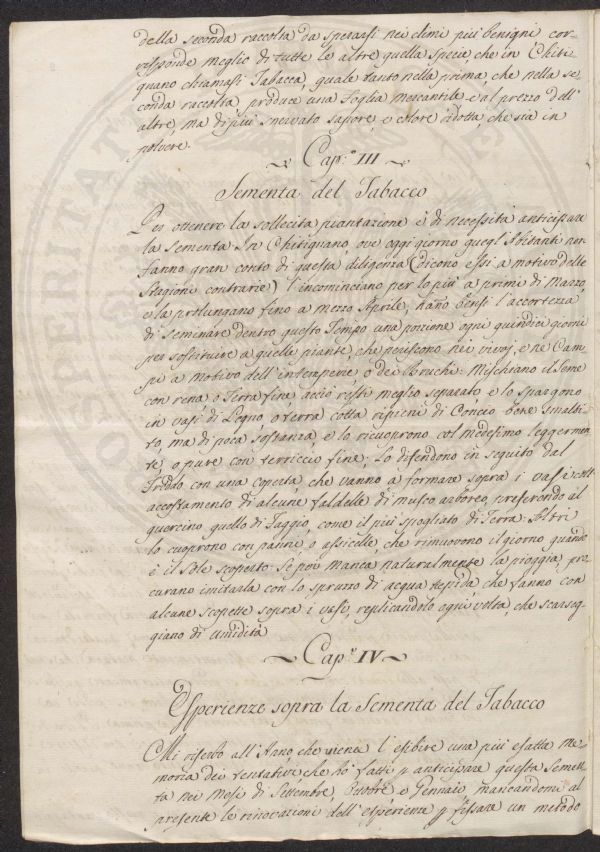 della seconda raccolta da sperarsi nei climi più benigni cor-
risponde meglio di tutte le altre quella specie, che in Chiti-
gnano chiamasi Tabacca, quale tanto nella prima, che nella se-
conda raccolta produce una foglia mercantile e al prezzo dell'
altre, ma di più snervato sapore, e colore ridotta, che sia in
polvere.
~ Cap.º III ~
Sementa del Tabacco
Per ottenere la sollecita piantazione è di necessità anticipare
la sementa. In Chitignano ove oggi giorno quegl'Abitanti non
fanno gran conto di questa diligenza (dicono essi a motivo delle
stagioni contrarie) l'incominciano per lo più a primi di Marzo,
e la prolungano fino a mezzo Aprile, hanno bensì l'accortezza
di seminare dentro questo Tempo una porzione ogni quindici giorni
per sostituire a quelle piante, che periscono nei vivaj, e ne Cam-
pi a motivo dell'intemperie, o dei Bruchi. Meschiano il seme
con rena, o Terra fine, acciò resti meglio separato, e lo spargono
in vasi di Legno, o terra cotta ripieni di Concio bene smalti-
to, ma di poca sostanza, e lo ricuoprono col medesimo leggermen-
te, o pure con terriccio fine; Lo difendono in seguito dal
freddo con una coperta, che vanno a formare sopra i vasi coll'
accostamento di alcune faldelle di musco arboreo, preferendo al
quercino quello di Faggio, come il più spogliato di Terra. Altri
lo cuoprono con panni, o assicelle, che rimuovono il giorno quando
è il Sole scoperto. Se poi manca naturalmente la pioggia, pro-
curano imitarla con lo spruzzo di acqua tepida, che fanno con
alcune scopette sopra i vasi, replicandolo ogni volta, che scarseg-
giano di umidità
~ Cap.º IV ~
Esperienze sopra la Sementa del Tabacco
Mi riserbo all'Anno che viene l'esibire una più esatta Me-
moria dei tentativi che hò fatti p anticipare questa Semen-
ta nei Mesi di Settembre, Ottobre e Gennaio, mancandomi al
presente le rinnovazioni dell'esperienze p fissare un metodo